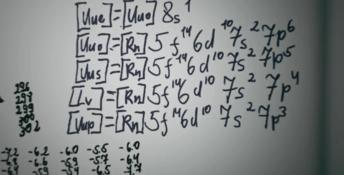 [Uue]=[Uuo] 8s¹
[Uuo]=[Rn]5f¹⁴6d¹⁰7s²7p⁶
[Uus]=[Rn]5f¹⁴6d¹⁰7s²7p⁵
[Lv]=[Rn]5f¹⁴6d¹⁰7s²7p⁴
[Uup]=[Rn]5f¹⁴6d¹⁰7s²7p³
302
-6.2 -6.0 -5.6 -6.0